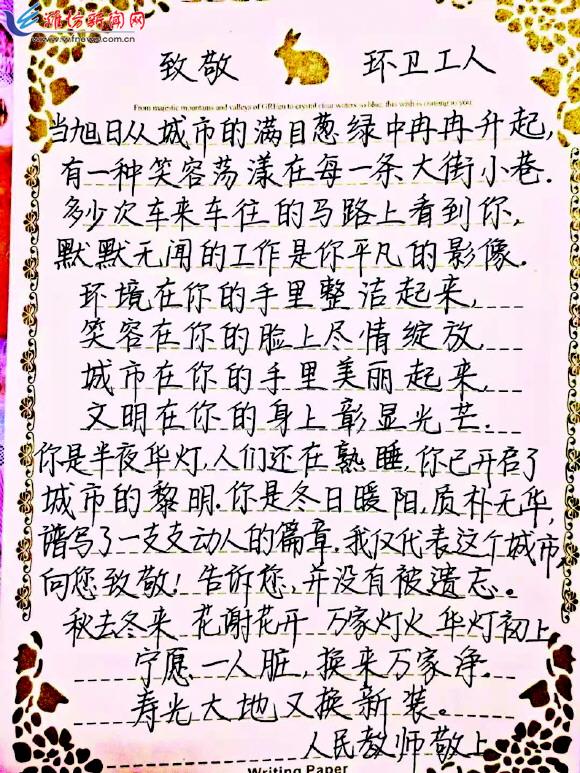 潍坊新闻网
www.wfnews.com.cn
致敬 环卫工人
From majestic mountains and valleys of GREen to crystal clear waters so blue, this wish is coming to you.
当旭日从城市的满目葱绿中冉冉升起,
有一种笑容荡漾在每一条大街小巷.
多少次车来车往的马路上看到你,
默默无闻的工作是你平凡的影像.
环境在你的手里整洁起来,
笑容在你的脸上尽情绽放
城市在你的手里美丽起来,
文明在你的身上彰显光芒.
你是半夜华灯,人们还在熟睡,你已开启了
城市的黎明.你是冬日暖阳,质朴无华,
谱写了一支支动人的篇章.我仅代表这个城市,
向您致敬!告诉您,并没有被遗忘。
秋去冬来 花谢花开 万家灯火 华灯初上
宁愿一人脏,换来万家净.
寿光大地又换新装。
人民教师敬上
Writing Paper